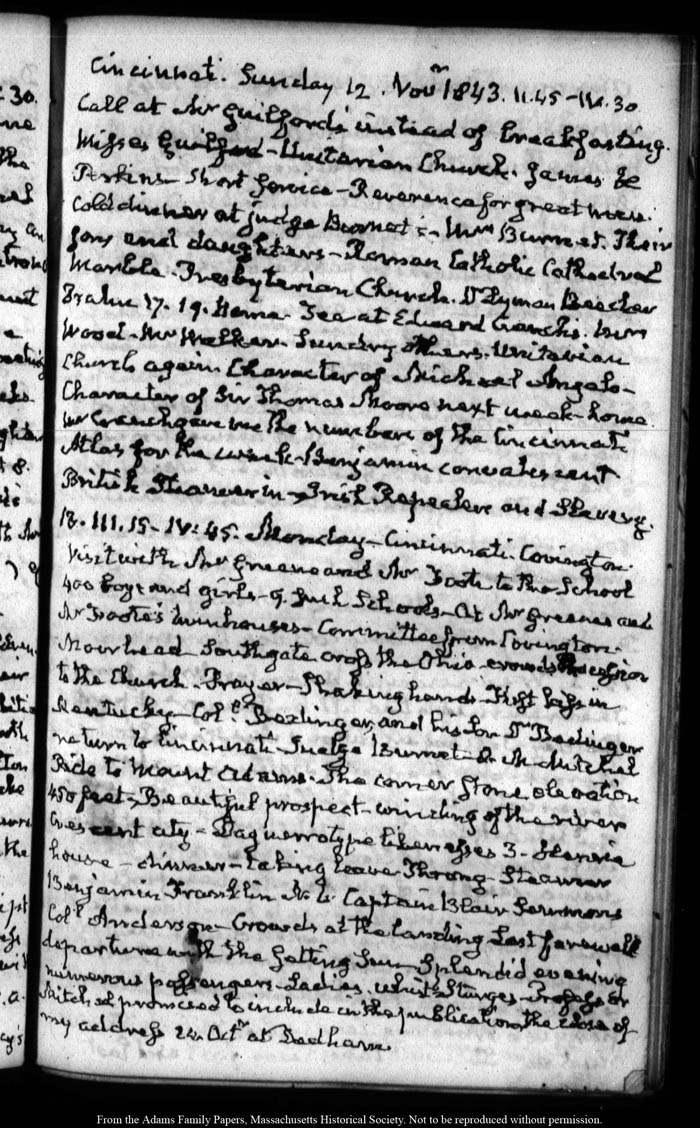 Cincinnati. Sunday 12. Novr 1843. II.45 - IV.30
Call at Mr Guilford's instead of breakfasting.
Misses Guilford - Unitarian Church. James H
Perkins - Short Service - Reverence for great men.
Cold dinner at judge Burnet's - Mrs Burnet. Their
sons and daughters - Roman Catholic Cathedral
Marble. Presbyterian Church. Dr Lyman Beecher
Psalm 17. 19. Home. Tea at Edward Cranch's.
Wood. Mr Walker. Sundry others. Unitarian
Church again. Character of Michael Angelo -
Character of Sir Thomas Moore next week - home.
Mr Cranch gave me the numbers of the Cincinnati
Atlas for the week - Benjamin convalescent
British Steamer in - Irish Repealers and Slavery.
13. III.15 - IV.45. Monday - Cincinnati. Covington.
Visit with Mr Greene and Mr Foote to the School
400 boys and girls - 9. such Schools - At Mr Greene's and
Mr Foote's houses - Committee from Covington.
Moorhead Southgate cross the Ohio - crowds Procession
to the Church - Prayer - Shaking hands - kiss in
Kentucky - Coll. and his Son Dr
return to Cincinnati - Judge Burnet & Mitchel
Ride to Mount Adams - The corner Stone elevation
450 feet - Beautiful prospect - winding of the river
Crescent city - Daguerrotype likenesses 3 - Henrie
house - dinner - taking leave Throng - Steamer
Benjamin Franklin Captain Blair Summons
Coll. Anderson - Crowds at the landing Last farewell
departure with the setting Sun - Splendid evening
numerous passengers - Ladies. whist Sturges - Professor
Mitchel promised to include in the publication, the close of
my address 24. Octr at Dedham.
From the Adams Family Papers, Massachusetts Historical Society. Not to be reproduced without permission.